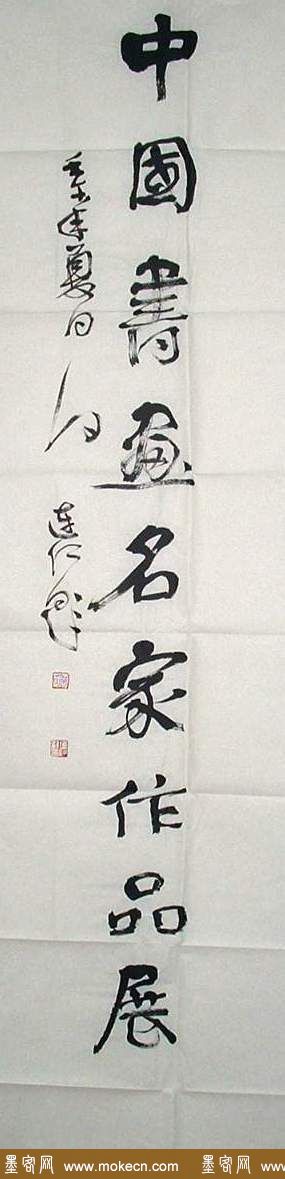 中國書畫名家作品展
年夏日
連仁
墨客网 www.mokecn.com 墨客网 www.